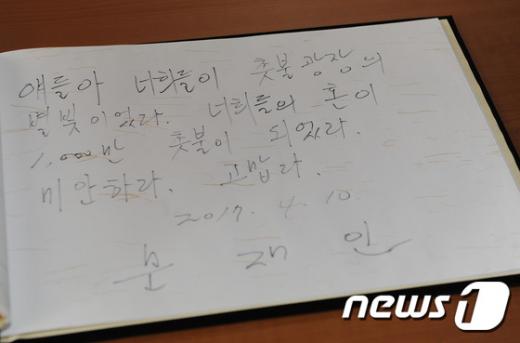 얘들아 너희들이 촛불광장의
별빛이었다. 너희들의 혼이
1,000만 촛불이 되었다.
미안하다. 고맙다.
2017. 4. 10.
문 재 인
news1